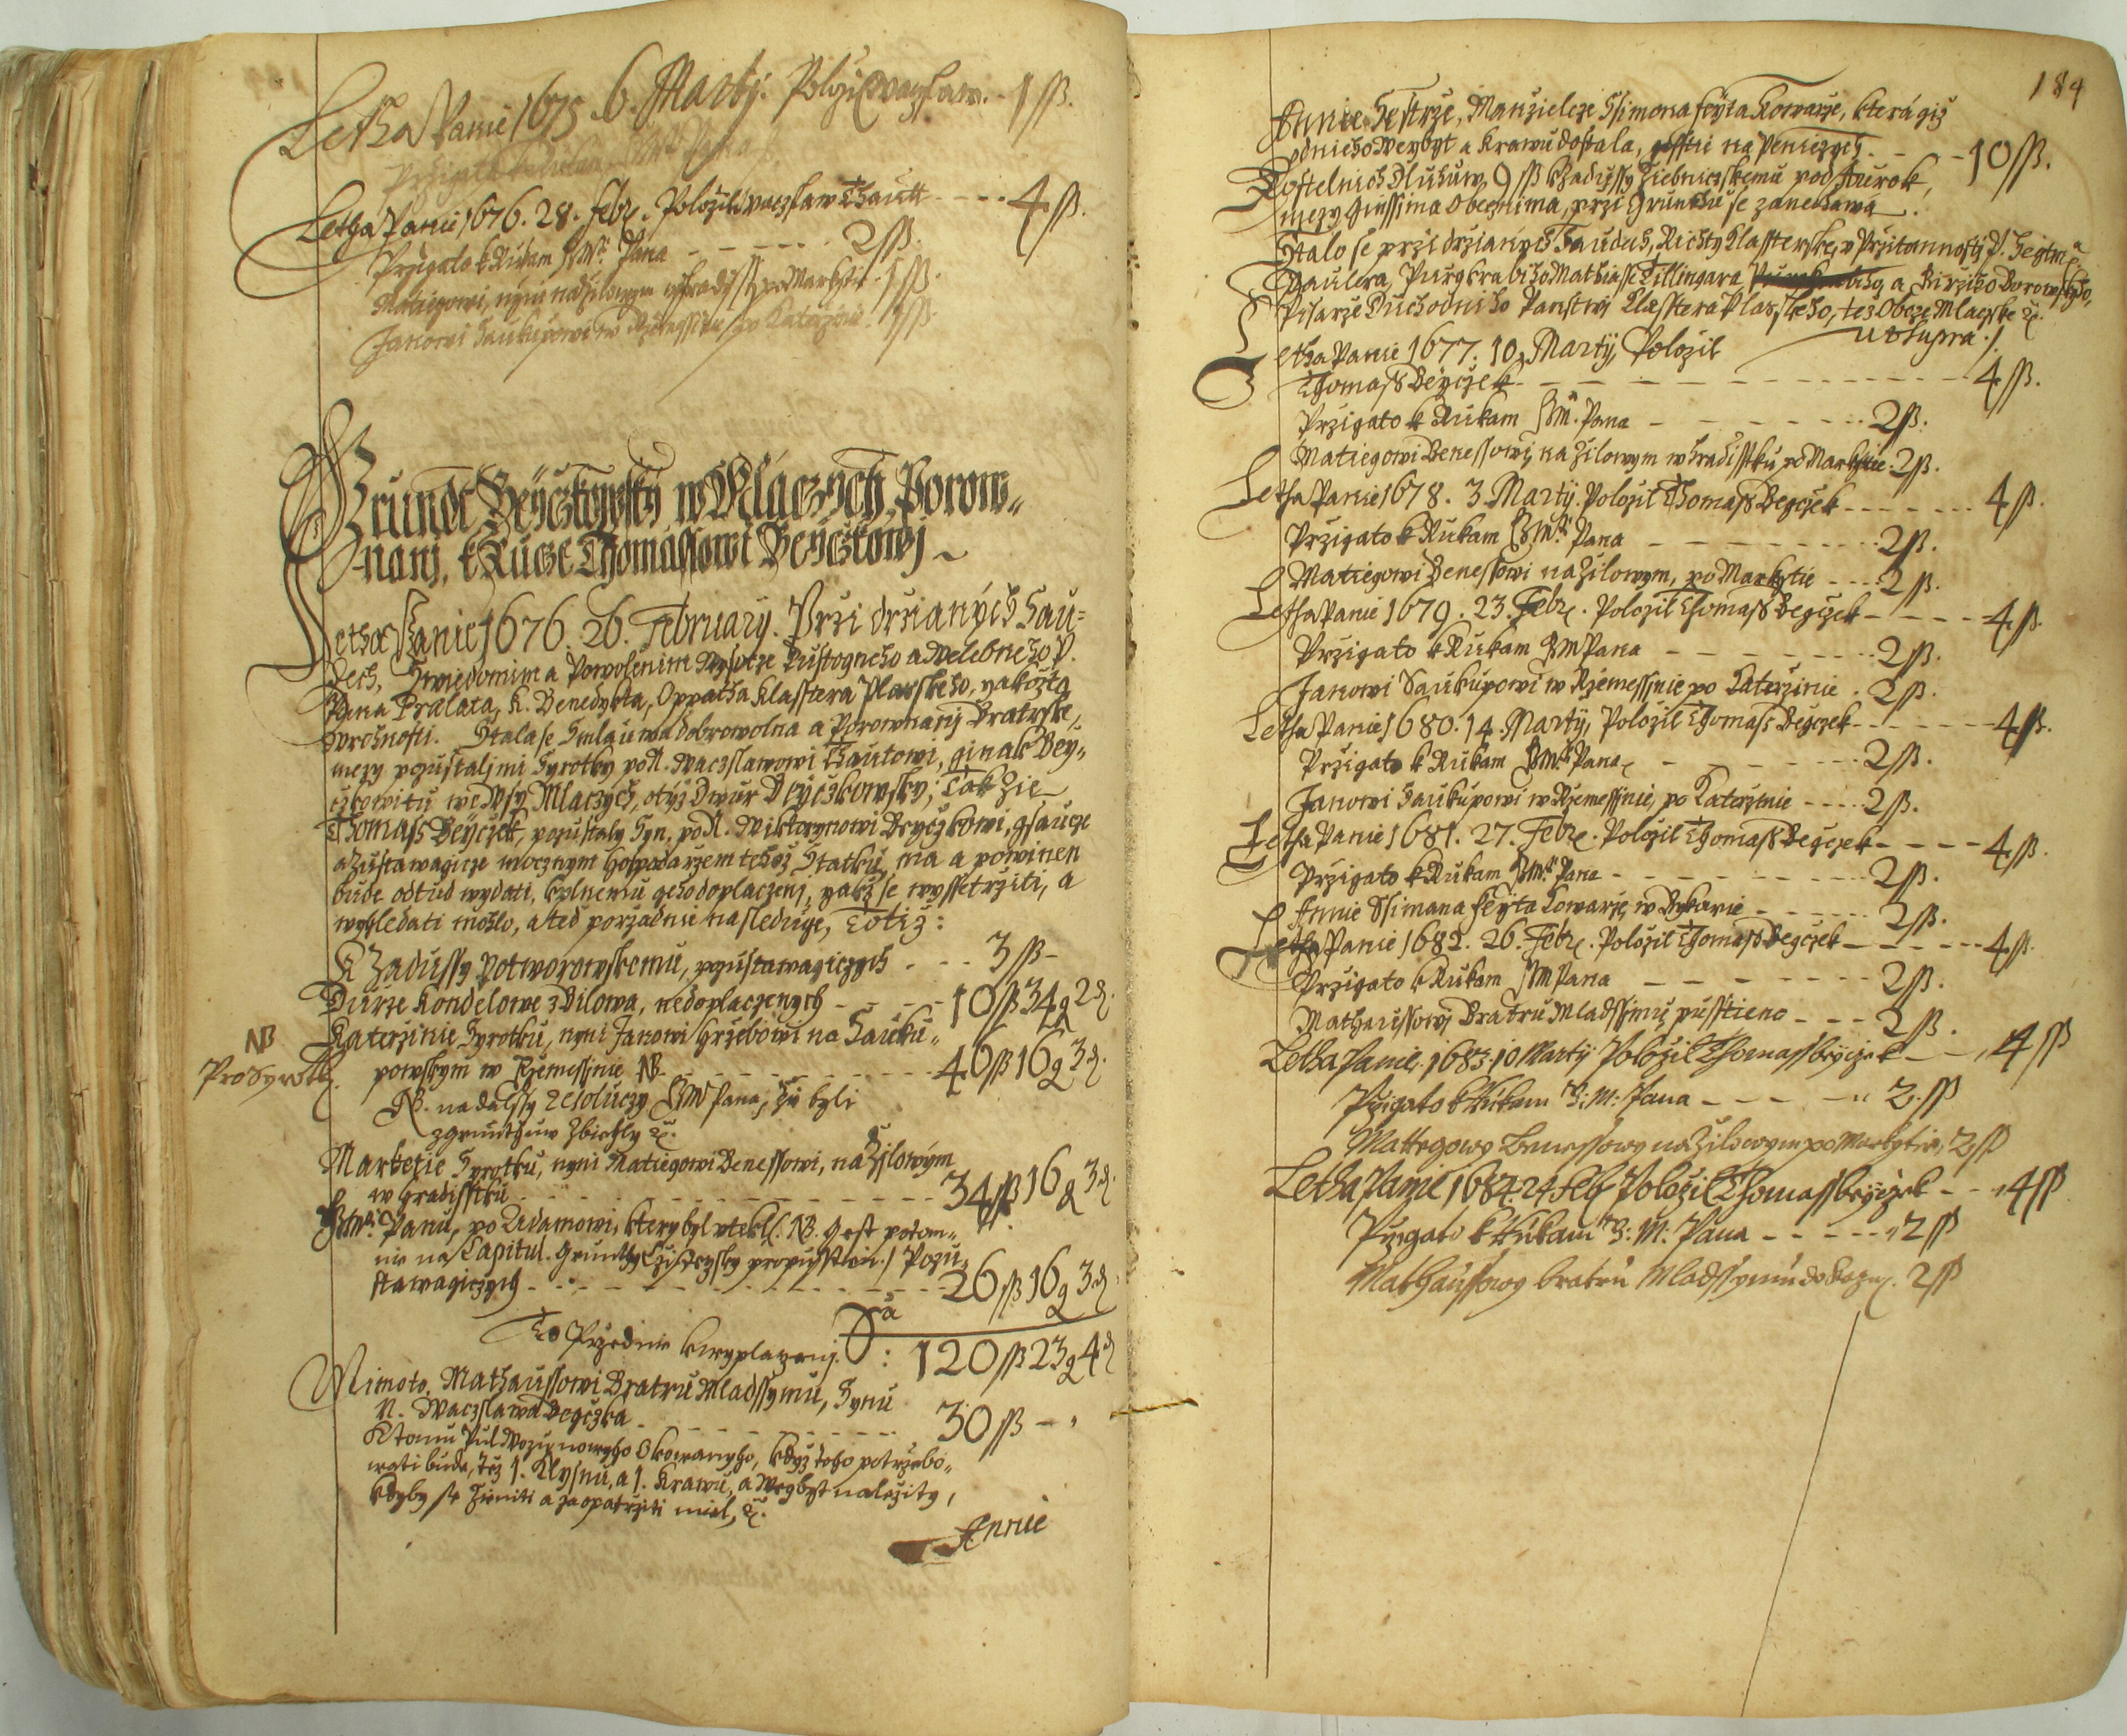 Letha Panie 1675. 6. Martij. Položil Waczslaw. - 1 ss.
Letha Panie 1676. 28. Febr. Položil Waczslaw Thautt - - - - 4 ss.
Przigato k Rukam JMti Pana - - - - - 2 ss.
Matiegowi, nyni na Žilowym w Hradisstku po Markytie. 1 ss.
Janowi Saukupowi w Rzemessinie, po Katerzinie. 1 ss.
Grundt Beyczkowsky w Mlaczych, Porow„
nanj, k Rucze Thomassowi Beyczkowj
Letha Panie 1676. 26. February. Przi držianých Sau=
dech, S wiedomim a Powolenim Wysocze Dustogneho a Welebneho P.
Pana Pralata, K. Benedykta, Oppatha Klasstera Plasskeho, yakožto
Wrchnosti. Stala se Smlauwa dobrowolna a Porownanij Bratrske,
mezy pozustalymi Syrotky po N. Waczslawowi Thautowi, ginak Bey„
czkowi tu we Wsy Mlaczych, o týž Dwur Beyczkowsky; Tak žie
Thomass Beyczek, pozustaly Syn, po N. Wiktorynowi Beyczkowi, gsaucze
a zustawagicze mocznym Hospodarzem tehož Statku, ma a powinen
bude odtud wydati, k plnemu geho doplaczenj, yakž se wyssetrziti, a
wyhledati mohlo, a ted porzadnie nasleduge, Totiž:
K Zadussy Potworowskemu, pozustawagiczych . - - - 3 ss -
Durze Kondelowe z Bilowa, nedoplaczenych - - - - 10 ss 34 g 2 d.
NB
Pro Syrotky.
Katerzinie Syrotku, nyni Janowi Hrzebowi na Sauku„
powskym w Rzemessinie NB. - - - - - - 40 ss 16 g 3 d.
NB. na dalssy Resoluczy JM Pana, žie byli
z Grunthuw Zbiehly &c.
Marketie Syrotku, nyni Matiegowi Benessowi, na Žilowým
w Hradisstku - - - - - - - - 34 ss 16 g 3 d.
JMti Panu, po Adamowi, ktery byl utekl. NB. gest potom„
nie na Capitul. Grunthy propusstien./ Pozu„
stawagiczych - - - - - - - - 26 ss 16 g 3 d.
To Przednie k wyplaczenj. Sa: 120 ss 23 g 4 d
Mimoto, Mathaussowi Bratru Mladssymu, Synu
N. Waczslawa Beyczka - - - - - - 30 ss - „
K tomu Pul Wozu noweho Okowaneho, když toho potrzebo„
wati bude, též 1. Klysnu, a 1. Krawu, a Weybyt naležity,
kdyby se Ženiti a zaopatrziti miel, &c.
Annie
184
Annie Sestrže, Manželcze Ssimona Feyta Kowarže, která giž
od nieho Weybyt a Krawu dostala, gesstie na Penizych - - - 10 ss.
Kostelnich Dluhuw, 9 ss k Zadussy Žiebniczskemu pod Aurok,
mezy ginssima Obecznima, przi Grunthu se zanechawa.
Stalo se przi držianých Saudech, Richty Klassterske, v Przitomnosti P. Hegtm.
Paulera, Purgkrabiho Mathiasse Tillingara, a Girziho Borowskyho,
Pisarže Duchodniho Panstwi Klasstera Plasskeho, též Obcze Mlaczske &c.
ut supra ./
Letha Panie 1677. 10. Martij, Položil
Thomass Beyczek - - - - - - - - - - 4 ss.
Przigato k Rukam JM. Pana - - - - - - 2 ss.
Matiegowi Benessowi, na Žilowym w Hradisstku, po Markytie. 2 ss.
Letha Panie 1678. 3. Martij. Položil Thomass Beyczek - - - - - - 4 ss.
Przigato k Rukam JMti Pana - - - - - - - 2 ss.
Matiegowi Benessowi na Žilowym, po Markytie - - - - 2 ss.
Letha Panie 1679. 23. Febr. Položil Thomass Beyczek - - - - - 4 ss.
Przigato k Rukam JM Pana - - - - - - 2 ss.
Janowi Saukupowi w Rzemessinie po Katerzinie . 2 ss.
Letha Panie 1680. 14. Martij, Položil Thomass Beyczek - - - - - - 4 ss.
Przigato k Rukam JMti Pana - - - - - - 2 ss.
Janowi Saukupowi w Rzemessinie, po Katerzinie - - - - 2 ss.
Letha Panie 1681. 27. Febr. Položil Thomass Beyczek - - - - 4 ss.
Przigato k Rukam JMti Pana - - - - - - - 2 ss.
Annie Ssimana Feyta Kowarže w Bykowie - - - - - 2 ss.
Letha Panie 1682. 26. Febr. Položil Thomass Beyczek - - - - - 4 ss.
Przigato k Rukam JM Pana - - - - - - - 2 ss.
Mathaussowj Bratru Mladssimu pusstieno - - - 2 ss.
Letha Panie. 1683. 10 Martij Položil Thomass beyczek - - „ 4 ss
Przigato k Rukam J: M: Pana - - - - „ 2. ss
Mattegowy Benessowy na Žilowym po Markytie, 2 ss
Letha Panie 1684. 24 Feb Položil Thomass beyczek - - „ 4 ss
Przigato k Rukam J: M: Pana - - - - - „ 2 ss
Mathaussowy bratru Mladssymu 2 ss